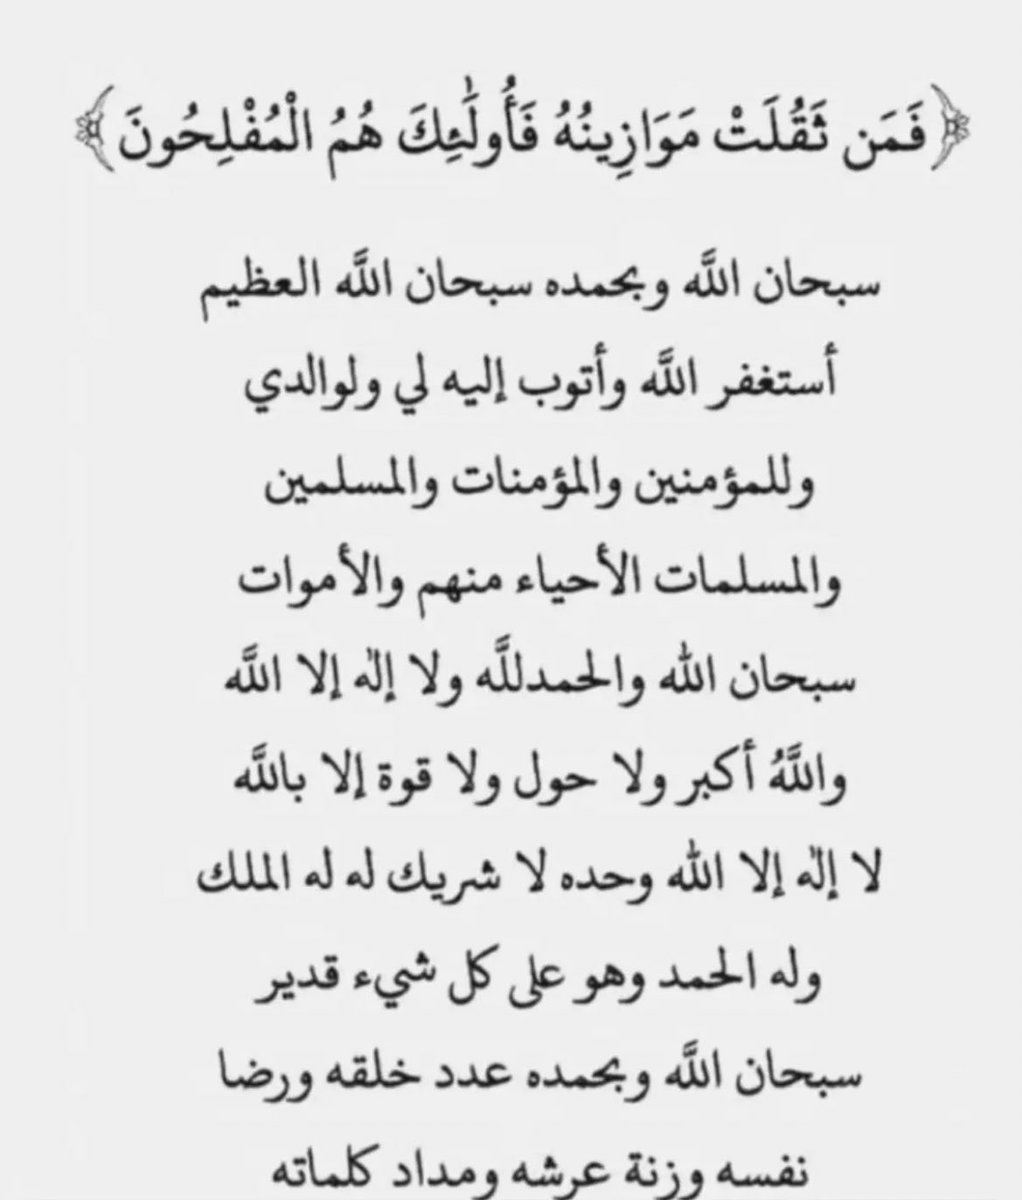 ﴿فَمَن ثَقُلَتْ مَوَازِينُهُ فَأُولَٰئِكَ هُمُ الْمُفْلِحُونَ﴾
سبحان اللَّه وبحمده سبحان اللَّه العظيم
أستغفر اللَّه وأتوب إليه لي ولوالدي
وللمؤمنين والمؤمنات والمسلمين
والمسلمات الأحياء منهم والأموات
سبحان الله والحمدللَّه ولا إلٰه إلا اللَّه
واللَّهُ أكبر ولا حول ولا قوة إلا باللَّه
لا إلٰه إلا الله وحده لا شريك له له الملك
وله الحمد وهو على كل شيء قدير
سبحان اللَّه وبحمده عدد خلقه ورضا
نفسه وزنة عرشه ومداد كلماته